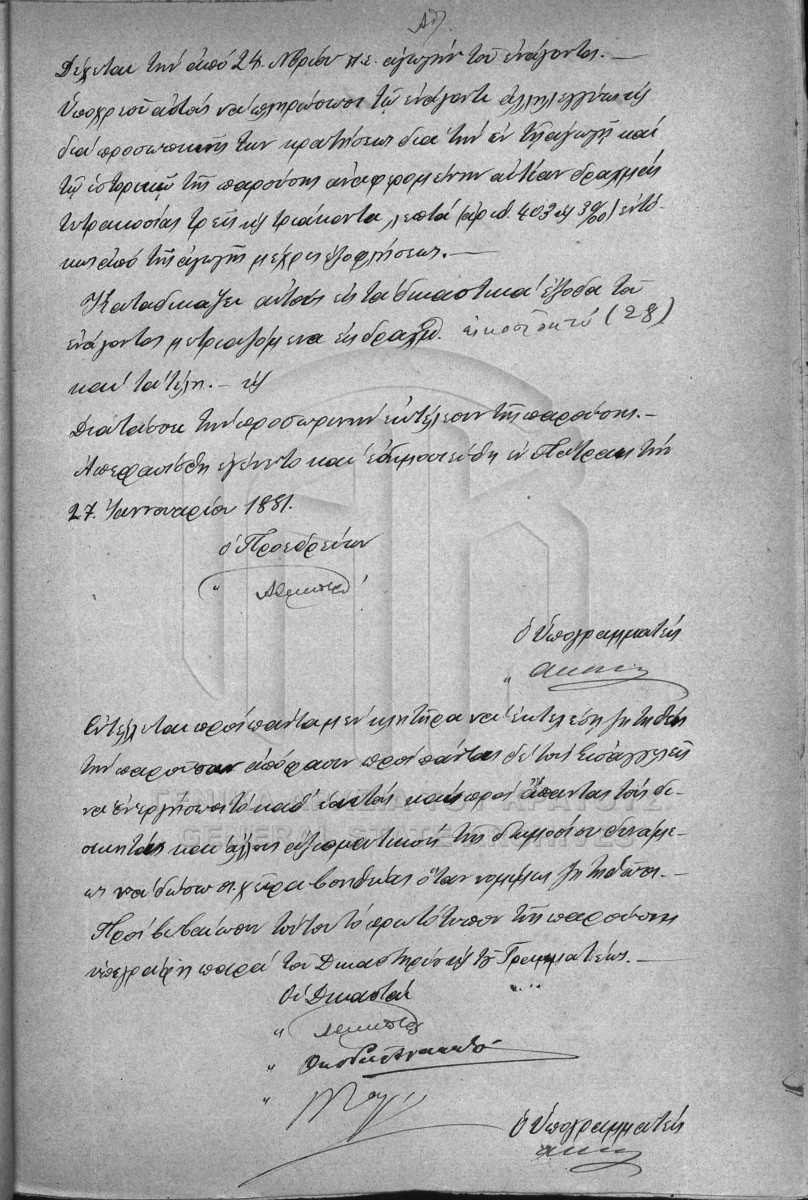 Δέχεται την από 24 Νβρίου π.ε. αγωγήν του ενάγοντος. —
Υποχρεοί αυτούς να πληρώσωσι τω ενάγοντι αλληλεγγύως και
διά προσωπικής των κρατήσεως διά την εν τη αγωγή και
τω ιστορικώ της παρούσης αναφερομένην αιτίαν δραχμάς
τετρακοσίας τρεις και τριάκοντα λεπτά (αριθ. 403 και 30/00) εντό-
κως από της αγωγής μέχρις εξοφλήσεως. —
Καταδικάζει αυτούς εις τα δικαστικά έξοδα του
ενάγοντος μετριαζόμενα εις δραχμ. είκοσι οκτώ (28)
και τα τέλη. — και
Διατάσσει την προσωρινήν εκτέλεσιν της παρούσης. —
Απεφασίσθη εγένετο και εδημοσιεύθη εν Πάτραις τη
27 Ιαννουαρίου 1881.
ο Προεδρεύων
ο Υπογραμματεύς
Εντέλλεται προς πάντα μεν κλητήρα να εκτελέση ζητηθείς
την παρούσαν απόφασιν προς πάντας δε τους Εισαγγελείς
να ενεργήσωσι το καθ' εαυτούς και προς άπαντας τους δι-
οικητάς και άλλους αξιωματικούς της δημοσίου δυνάμε-
ως να δώσωσι χείρα βοηθείας όταν νομίμως ζητηθώσι. —
Προς βεβαίωσιν τούτου το πρωτότυπον της παρούσης
υπεγράφη παρά του Δικαστηρίου και του Γραμματέως. —
Οι Δικασταί
ο Υπογραμματεύς
ΓΕΝΙΚΑ ΑΡΧΕΙΑ ΤΟΥ ΚΡΑΤΟΥΣ
GENERAL STATE ARCHIVES